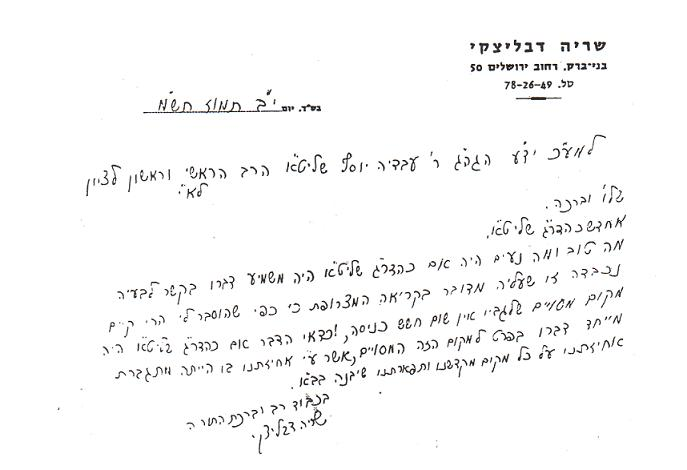 שריה דבליצקי
בני-ברק, רחוב ירושלים 50
טל. 78-26-49
בס״ד, יום י״ב תמוז תש״מ
למע״כ ידי״ע הגה״ג ר׳ עבדיה יוסף שליט״א הרב הראשי וראשון לציון
לא״י
שלו׳ וברכה.
אחדשכהדר״ג שליט״א,
מה טוב ומה נעים היה אם כהדר״ג שליט״א היה משמיע דברו בקשר לבעיה
נכבדה זו שעליה מדובר בקריאה המצורפת כי כפי שהוסבר לי הרי קיים
מקום מסויים שלגביו אין שום חשש כניסה, וכדאי הדבר אם כהדר״ג שליט״א היה
מייחד דברו בפרט למקום הזה המסויים, אשר ע״י אחיזתנו בו הייתה מתגברת
אחיזתנו על כל מקום מקדשנו ותפארתנו שיבנה בב״א.
בכבוד רב וברכת התורה
שריה דבליצקי